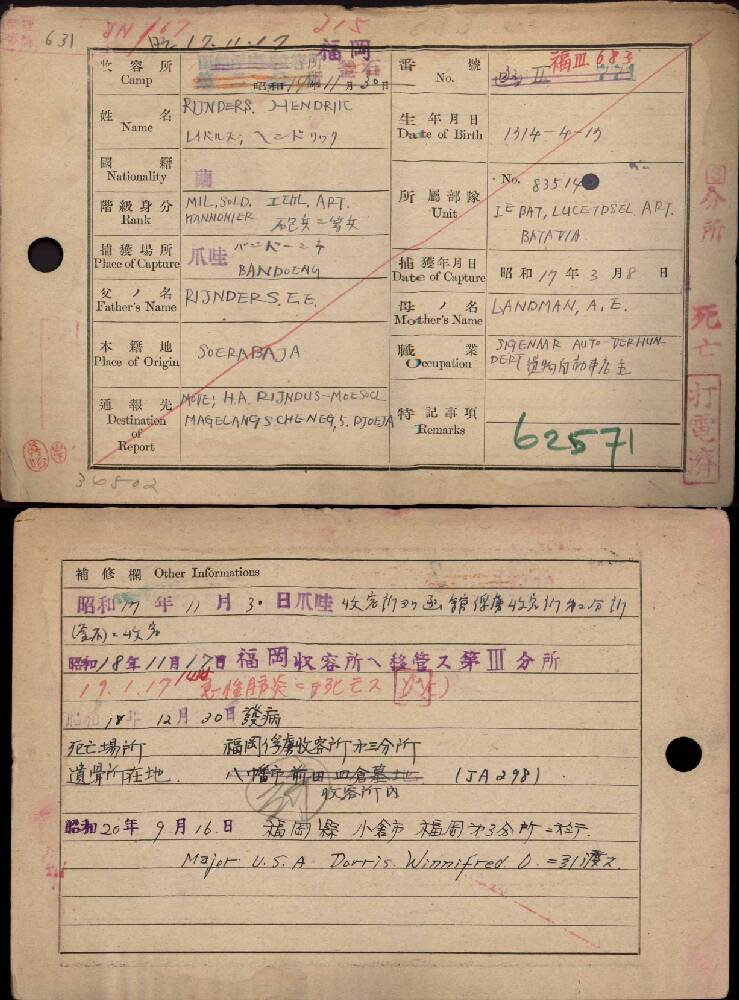 631
215
昭 17.11.17
福岡
收容所
Camp
昭和17年11月30日
番 號
No.
福Ⅲ 683
姓 名
Name
RIJNDERS. HENDRIK
生年月日
Date of Birth
1914-4-19
國 籍
Nationality
蘭
階級身分
Rank
MIL. SOLD. IEKL. ART.
KANNONIER
所屬部隊
Unit
No. 83514
BATAVIA
捕獲場所
Place of Capture
爪哇
BANDOENG
捕獲年月日
Date of Capture
昭和17年3月8日
父ノ名
Father's Name
RIJNDERS. E.E.
母ノ名
Mother's Name
LANDMAN, A.E.
本籍地
Place of Origin
SOERABAJA
職業
Occupation
SIGENAAR AUTO-VERHUN-
DERT
通報先
Destination
of
Report
MAGELANGSCHEWEG, 5. DJOEJA
特記事項
Remarks
62571
分所
死亡
打電濟
36802
補修欄 Other Informations
昭和17年11月30日爪哇收容所ヨリ函館俘虜收容所第2分所
(釜石)ニ收容
昭和18年11月17日福岡收容所ヘ移管ス第Ⅲ分所
19.1.17 急性肺炎ニテ死亡ス
昭和18年12月30日發病
死亡場所 福岡俘虜收容所第三分所
遺骨所在地 八幡市前田四倉墓地 (JA298)
收容所内
昭和20年9月16日 福岡縣小倉市福岡第3分所ニ於テ
Major U.S.A. Dorris. Winnifred. O. ニ引渡ス